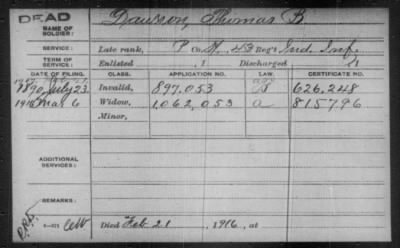 DEAD
NAME OF SOLDIER: Dawson, Thomas B.
SERVICE: Late rank, P Co. H, 43 Reg't Ind. Inf.
TERM OF SERVICE: Enlisted , 1 Discharged , 1
DATE OF FILING. CLASS. APPLICATION NO. LAW. CERTIFICATE NO.
1890 July 23 Invalid, 897,053 626,248
1916 Mar 6 Widow, 1,062,053 a 815796
Minor,
ADDITIONAL SERVICES:
REMARKS:
Died Feb 21 , 1916, at